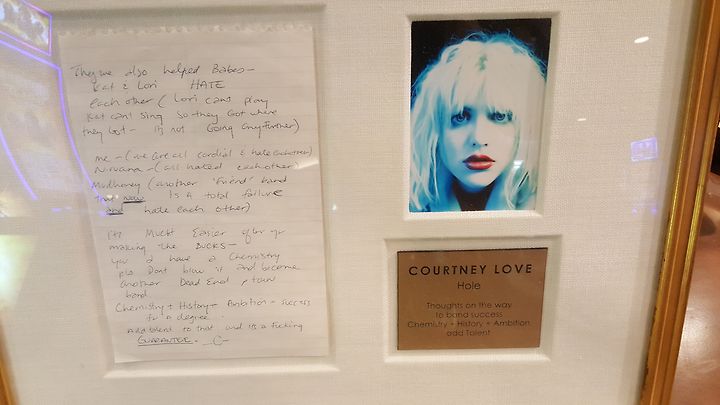 They've also helped Babes -
Kat & Lori HATE
each other (Lori cant play
Kat can't sing so they got where
they got - its not going any further)
me - (we are all cordial & hate eachother)
Nirvana - (all hated eachother)
Mudhoney (another "friend" band
that now is a total failure
and hate each other)
its Much Easier after
making the BUCKS -
you 2 have a chemistry
pls Dont blow it and become
another Dead End town
band.
Chemistry + History + Ambition = success
to a degree.
add talent to that and its a fucking
GUARANTEE. _C_
COURTNEY LOVE
Hole
Thoughts on the way
to band success
Chemistry + History + Ambition
add Talent